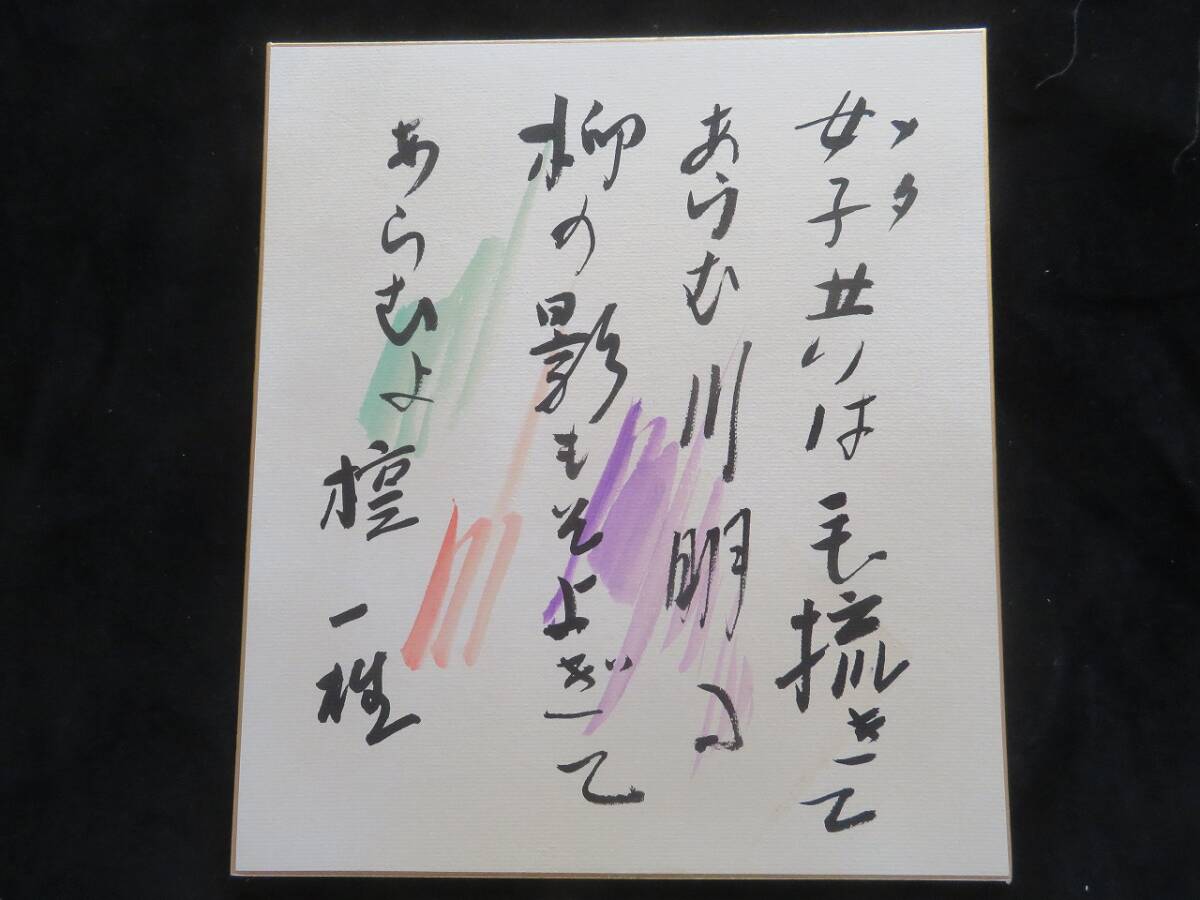 メタ
女子共は毛梳きて
あらむ川明り
柳の影もそよぎて
あらむよ 檀一雄